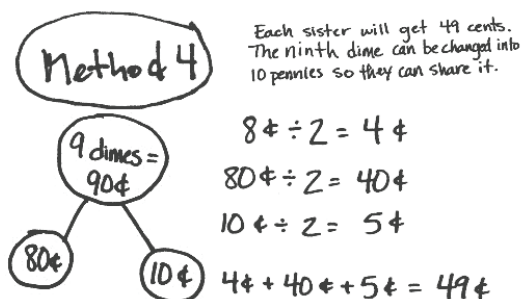 Method 4
Each sister will get 49 cents.
The ninth dime can be changed into
10 pennies so they can share it.
9 dimes =
90¢
80¢
10¢
8¢ ÷ 2 = 4¢
80¢ ÷ 2 = 40¢
10¢ ÷ 2 = 5¢
4¢ + 40¢ + 5¢ = 49¢